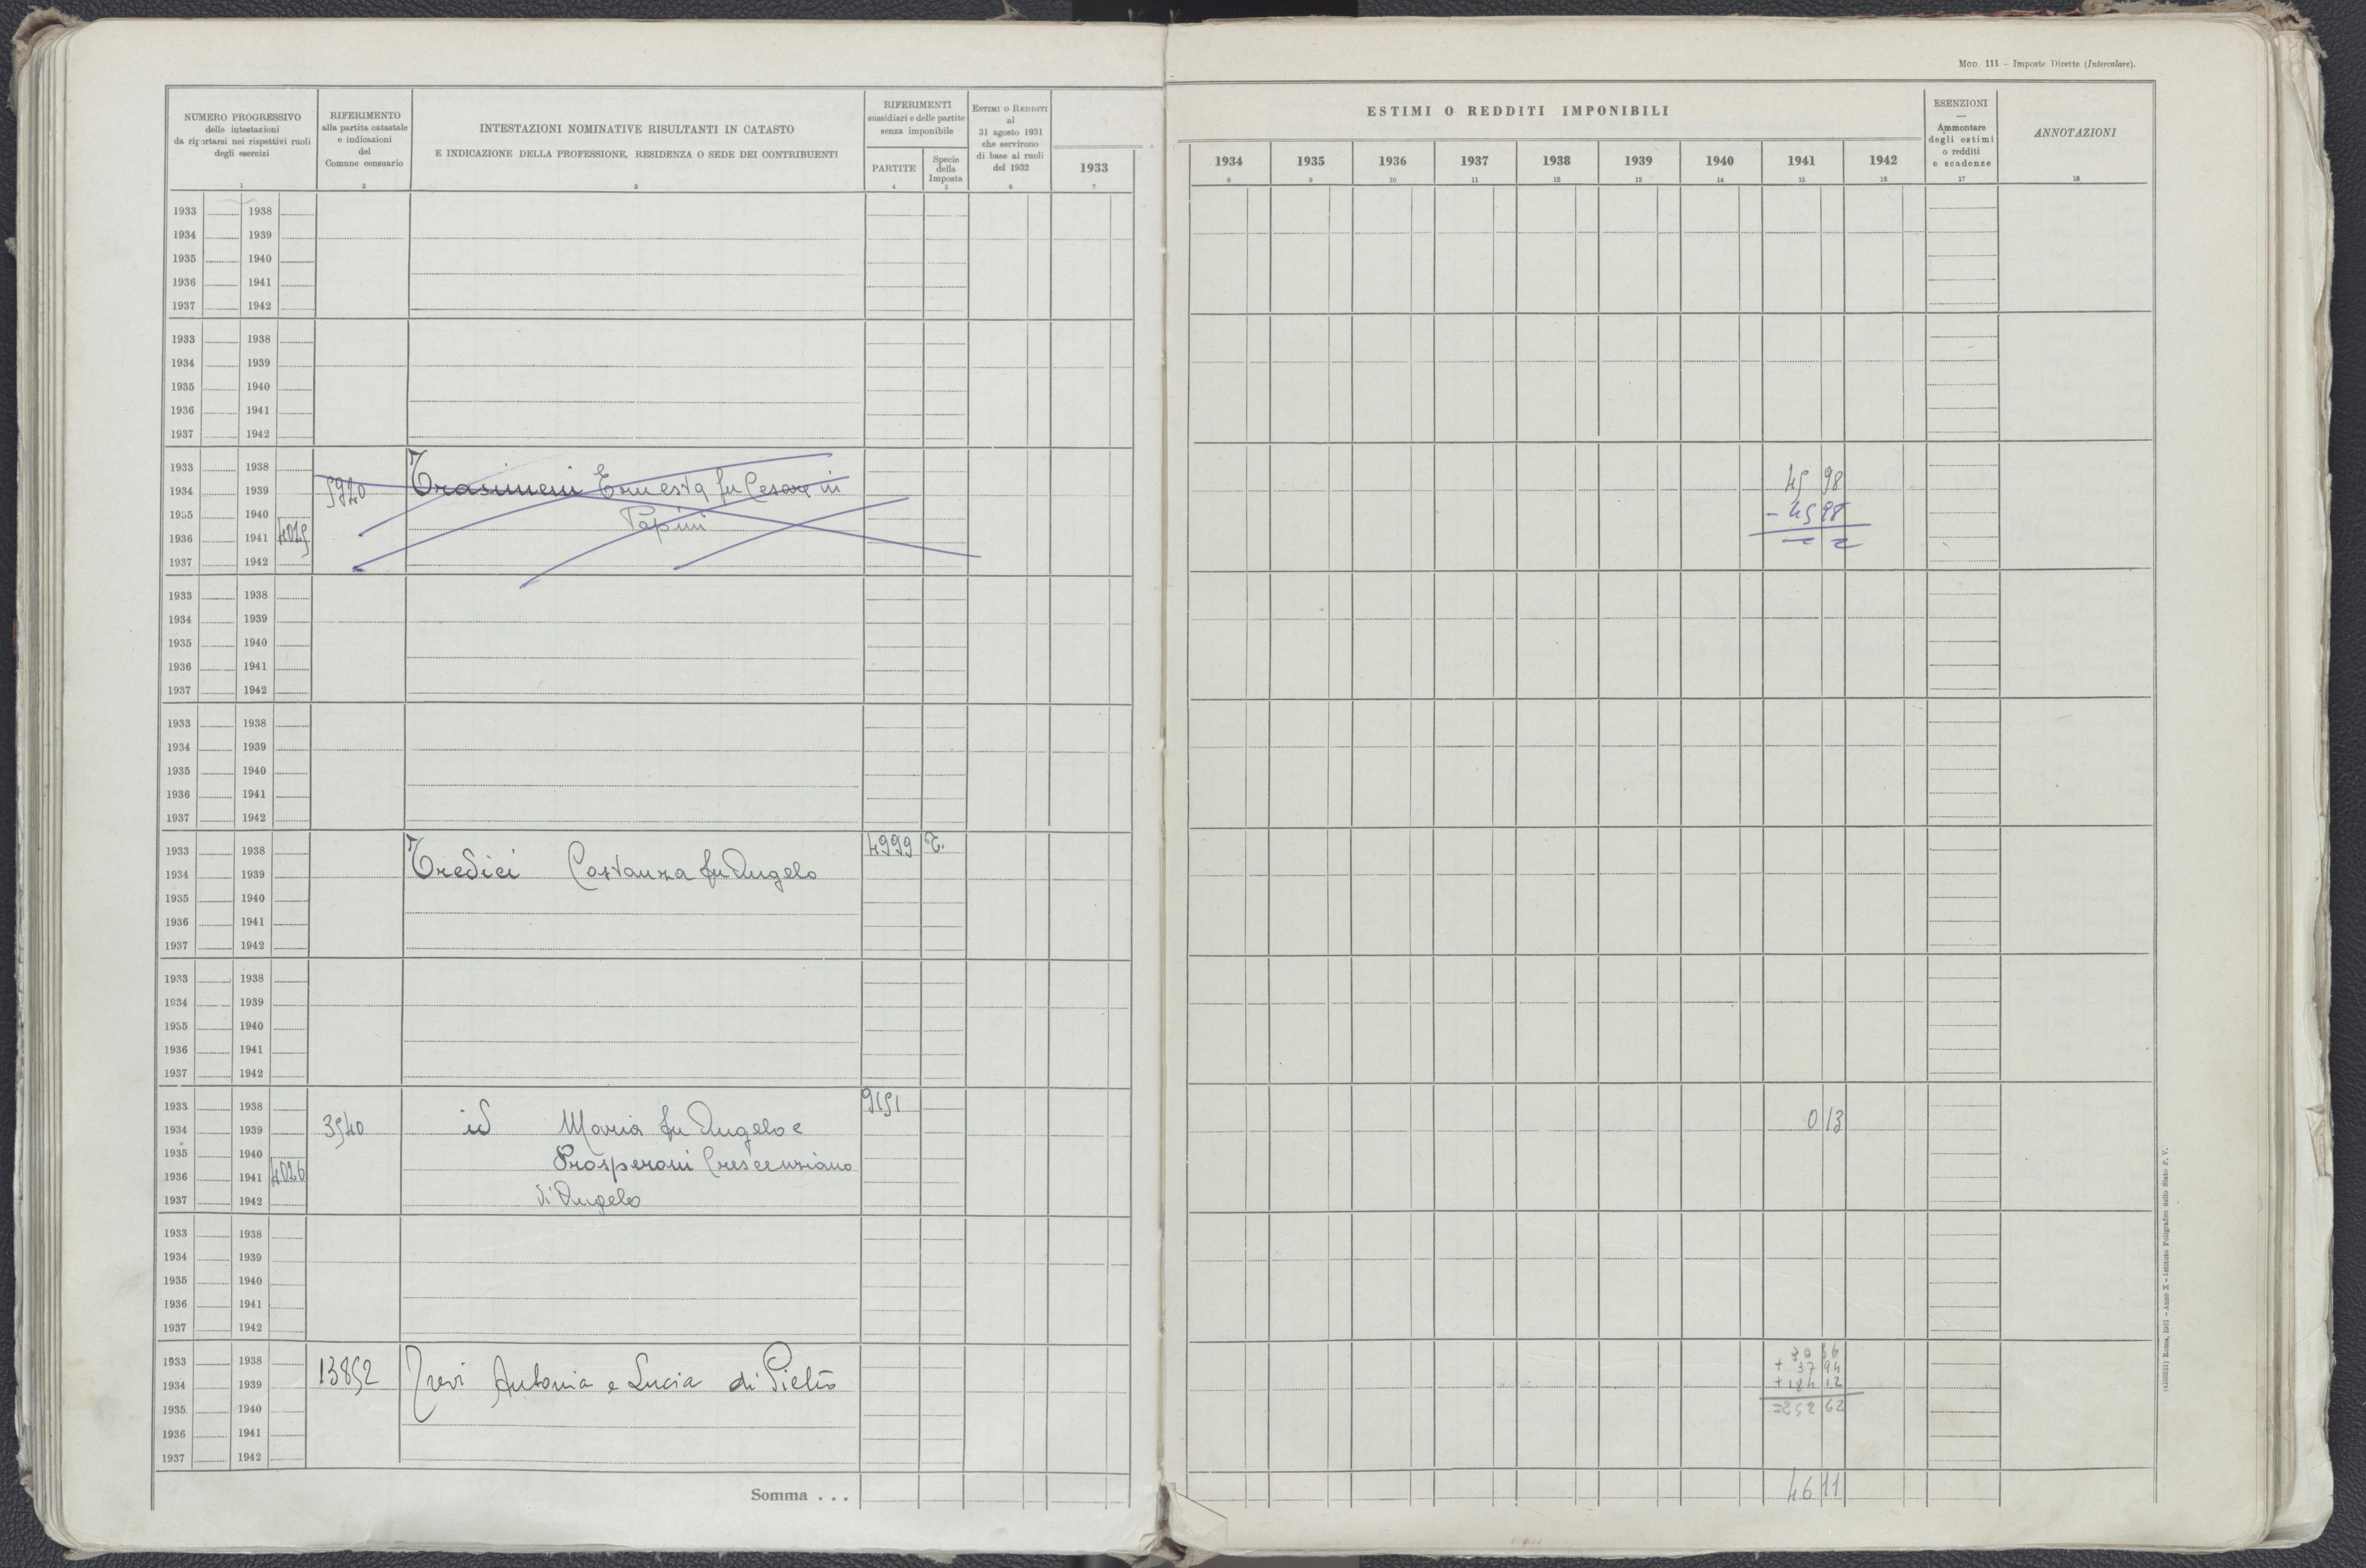 Mod. 111 - Imposte Dirette (Intercalare).
NUMERO PROGRESSIVO
delle intestazioni
da riportarsi nei rispettivi ruoli
degli esercizi
1
RIFERIMENTO
alla partita catastale
e indicazioni
del
Comune censuario
2
INTESTAZIONI NOMINATIVE RISULTANTI IN CATASTO
E INDICAZIONE DELLA PROFESSIONE, RESIDENZA O SEDE DEI CONTRIBUENTI
3
RIFERIMENTI
sussidiari e delle partite
senza imponibile
PARTITE
4
Specie
della
Imposta
5
Estimi o Redditi
al
31 agosto 1931
che servirono
di base ai ruoli
del 1932
6
1933
7
ESTIMI O REDDITI IMPONIBILI
1934 1935 1936 1937 1938 1939 1940 1941 1942
8 9 10 11 12 13 14 15 16
ESENZIONI
—
Ammontare
degli estimi
o redditi
e scadenze
17
ANNOTAZIONI
18
1933 1938
1934 1939
1935 1940
1936 1941
1937 1942
1933 1938
1934 1939
1935 1940
1936 1941
1937 1942
1933 1938
1934 1939 5920 Trasimeni Ernesta fu Cesare in 45 98
1935 1940 Papini - 45 98
1936 1941 4025
1937 1942
1933 1938
1934 1939
1935 1940
1936 1941
1937 1942
1933 1938
1934 1939
1935 1940
1936 1941
1937 1942
1933 1938 4999 T.
1934 1939 Tredici Costanza fu Angelo
1935 1940
1936 1941
1937 1942
1933 1938
1934 1939
1935 1940
1936 1941
1937 1942
1933 1938 9151
1934 1939 3540 id Maria fu Angelo e 0 13
1935 1940 Prosperoni Crescenziano
1936 1941 4026
1937 1942 di Angelo
1933 1938
1934 1939
1935 1940
1936 1941
1937 1942
1933 1938 13852 Trevi Antonia e Lucia di Pietro 30 56
+ 37 94
1934 1939 + 184 12
1935 1940 = 252 62
1936 1941
1937 1942
Somma . . . 46 11
(4103511) Roma, 1931 - Anno X - Istituto Poligrafico dello Stato P. V.